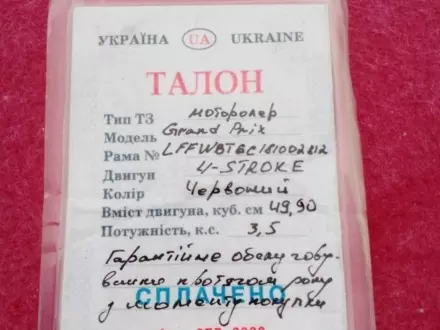 УКРАЇНА UA UKRAINE
ТАЛОН
Тип ТЗ моторолер
Модель Grand Prix
Рама № LFFWBT6C181002812
Двигун 4-STROKE
Колір Червоний
Вміст двигуна, куб. см 49,90
Потужність, к.с. 3,5
Гарантійне обслугову-
вання протягом року
з моменту покупки
СПЛАЧЕНО